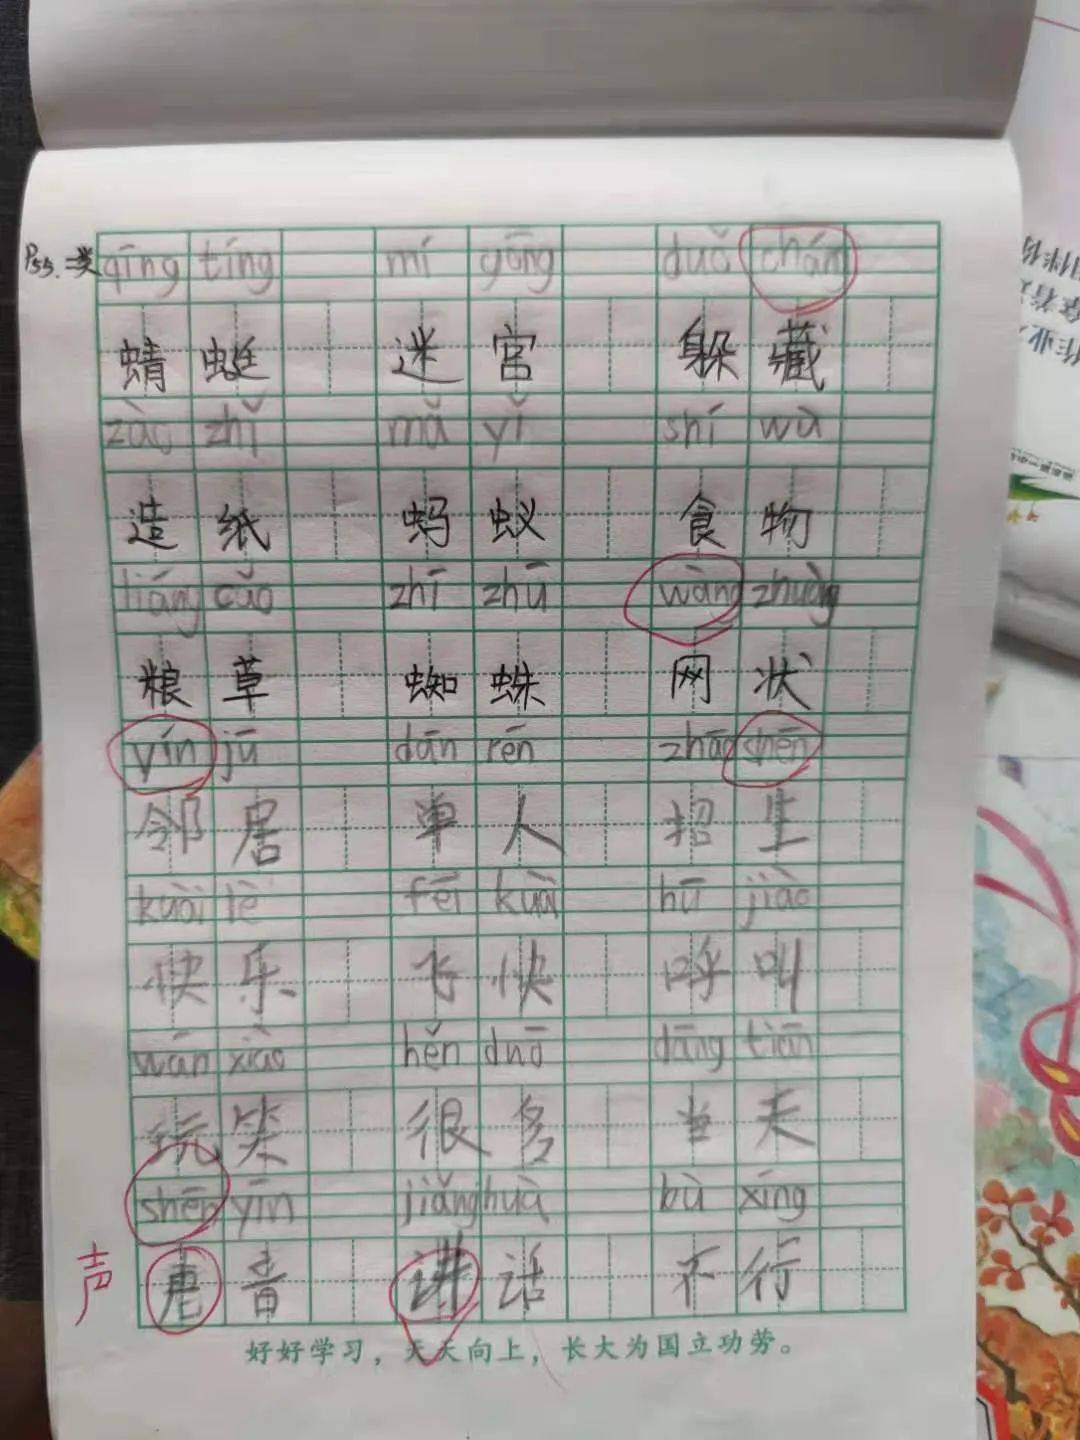 P55.二类
qīng tíng mí gōng duǒ cháng
蜻蜓 迷宫 躲藏
zào zhǐ mǎ yǐ shí wù
造纸 蚂蚁 食物
liáng cǎo zhī zhū wàng zhuàng
粮草 蜘蛛 网状
yín jū dān rén zhāo shēn
邻居 单人 招生
kuài lè fēi kuài hū jiào
快乐 飞快 呼叫
wán xiào hěn duō dāng tiān
玩笑 很多 当天
shēn yīn jiǎng huà bù xíng
声 音 讲话 不行
好好学习，天天向上，长大为国立功劳。